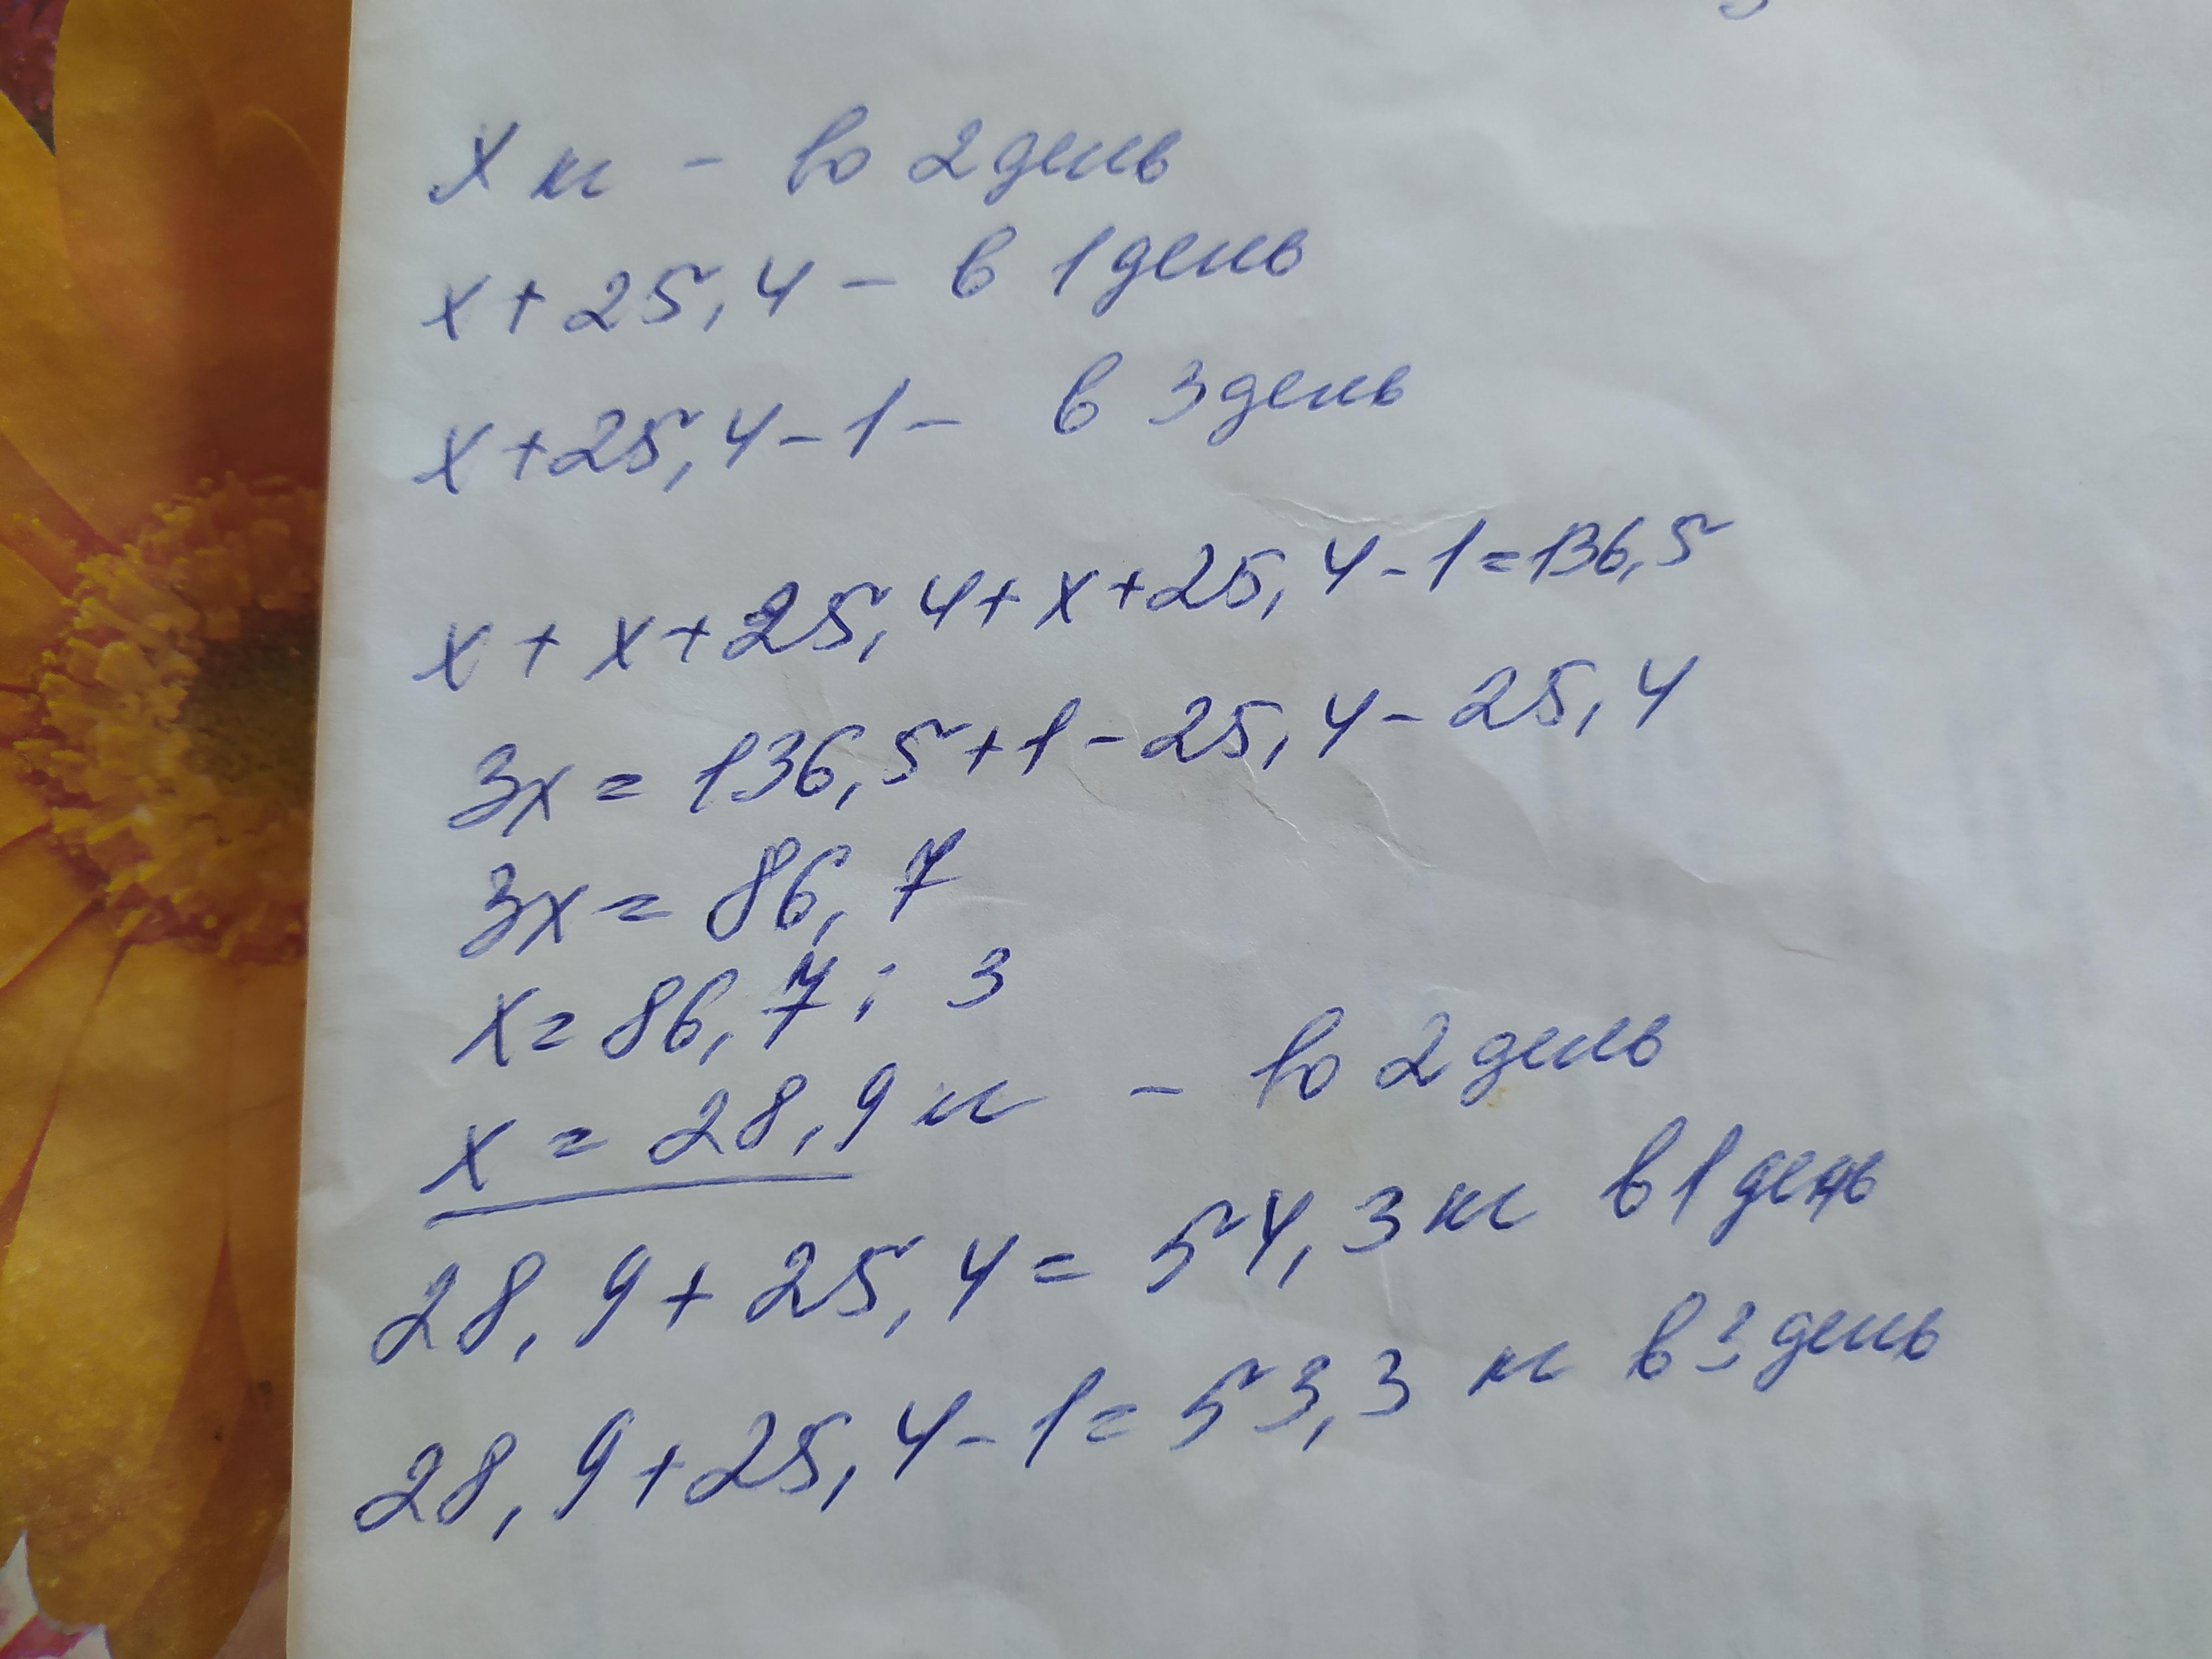 х кг - во 2 день
х + 25,4 - в 1 день
х + 25,4 - 1 - в 3 день
х + х + 25,4 + х + 25,4 - 1 = 136,5
3х = 136,5 + 1 - 25,4 - 25,4
3х = 86,7
х = 86,7 : 3
х = 28,9 кг - во 2 день
28,9 + 25,4 = 54,3 кг в 1 день
28,9 + 25,4 - 1 = 53,3 кг в 3 день